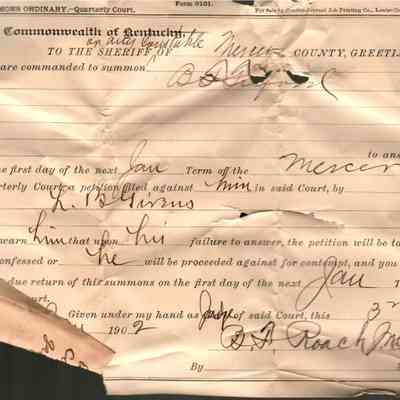 MONS ORDINARY.—Quarterly Court. Form 0101. For Sale by Courier-Journal Job Printing Co., Louisv
Commonwealth of Kentucky,
or any Constable
TO THE SHERIFF OF Mercer COUNTY, GREETI
are commanded to summon B
to ans
he first day of the next Jan Term off the Mercer
rterly Court, a petition filed against him in said Court, by
L. B. Givens
warn him that upon his failure to answer, the petition will be ta
onfessed or he will be proceeded against for contempt, and you
due return of this summons on the first day of the next Jan T
ourt.
Given under my hand as Judge of said Court, this 3
190 2
B. A. Roach
By